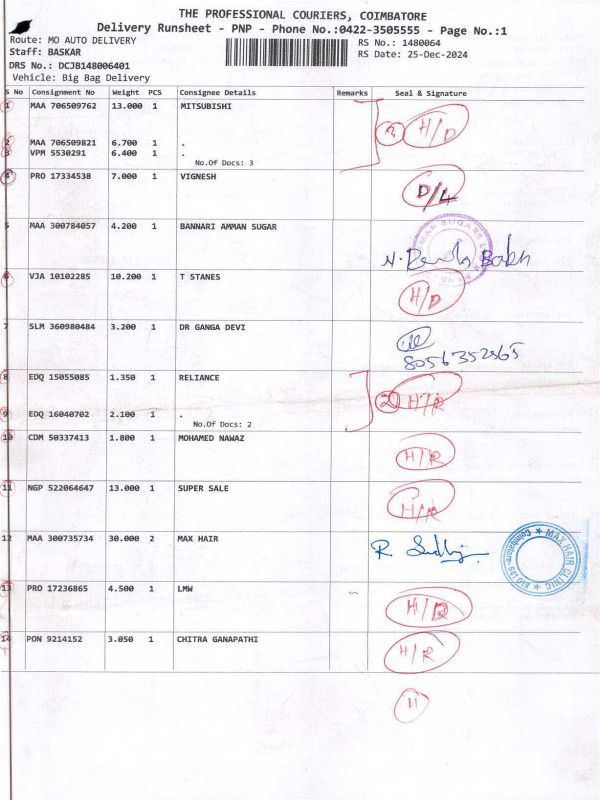 THE PROFESSIONAL COURIERS, COIMBATORE
Delivery Runsheet - PNP - Phone No.:0422-3505555 - Page No.:1
Route: MO AUTO DELIVERY
RS No.: 1480064
Staff: BASKAR
RS Date: 25-Dec-2024
DRS No.: DCJB148006401
Vehicle: Big Bag Delivery
S No Consignment No Weight PCS Consignee Details Remarks Seal & Signature
1 MAA 706509762 13.000 1 MITSUBISHI
3 H/D
2 MAA 706509821 6.700 1 .
3 VPM 5530291 6.400 1 .
No.Of Docs: 3
4 PRO 17334538 7.000 1 VIGNESH
D/4
5 MAA 300784057 4.200 1 BANNARI AMMAN SUGAR
6 VJA 10102285 10.200 1 T STANES
H/D
7 SLM 360980484 3.200 1 DR GANGA DEVI
8056352565
8 EDQ 15055085 1.350 1 RELIANCE
2 H/R
9 EDQ 16040702 2.100 1 .
No.Of Docs: 2
10 CDM 50337413 1.800 1 MOHAMED NAWAZ
H/R
11 NGP 522064647 13.000 1 SUPER SALE
H/R
12 MAA 300735734 30.000 2 MAX HAIR
MAX HAIR CLINIC
Coimbatore-641 018
13 PRO 17236865 4.500 1 LMW
H/D
14 PON 9214152 3.050 1 CHITRA GANAPATHI
H/R
11